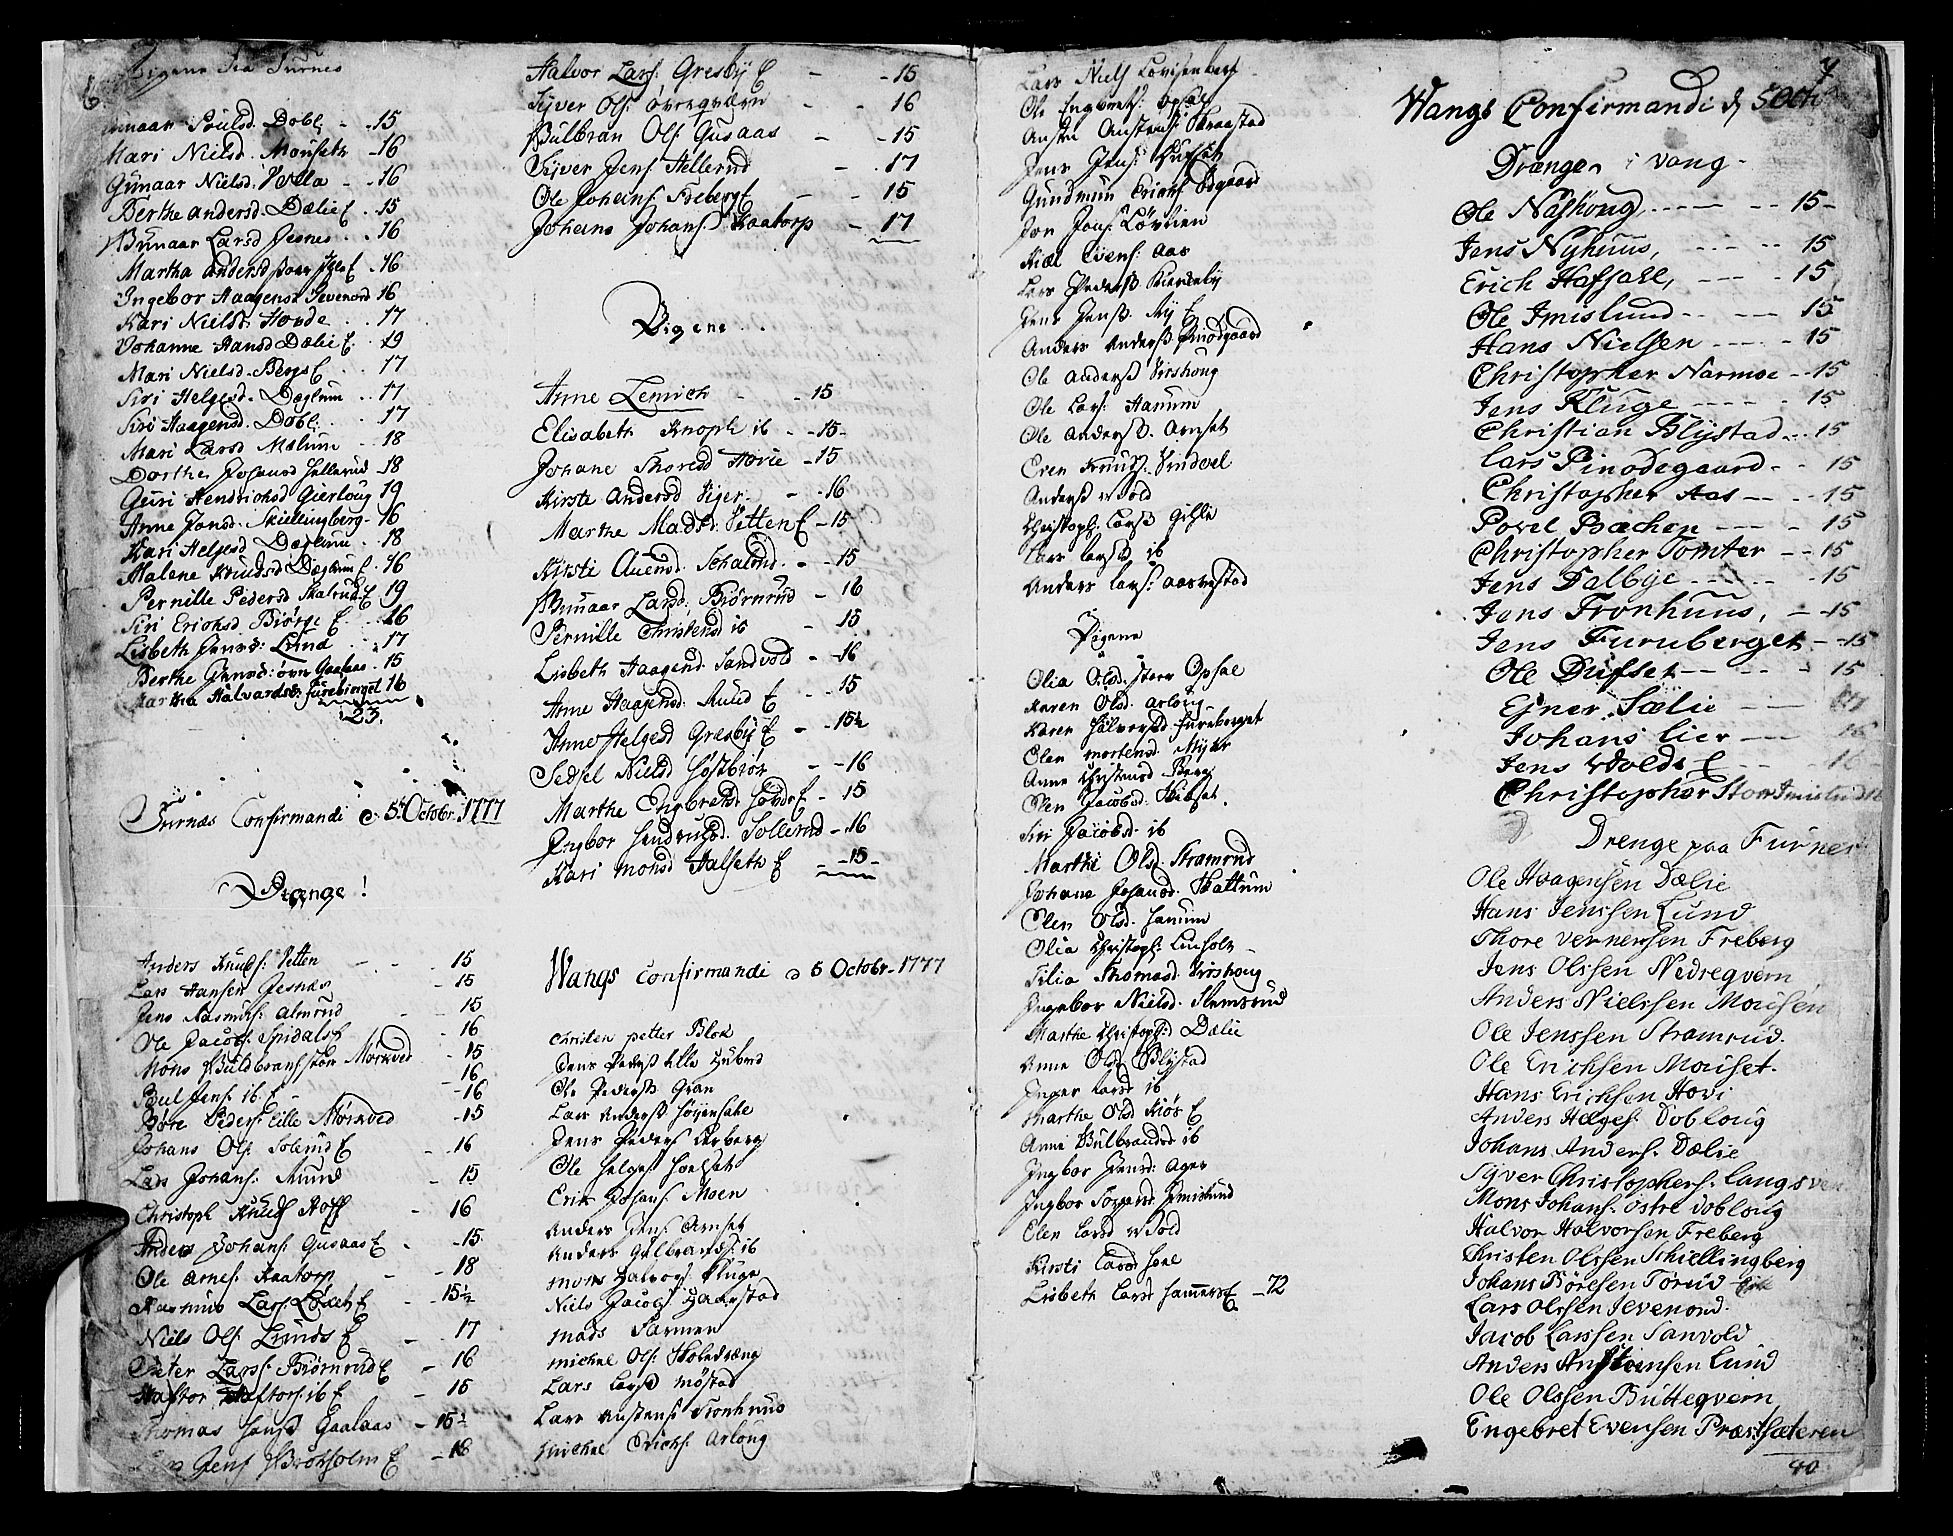 6
Pigene fra Furnes
Gunaar Poulsd. Dobl. - 15
Kari Nielsd. Mouseth - 16
Gunaar Nielsd. - 16
Berthe andersd. Dælie E - 15
Gunaar Larsd Jesnes - 16
Martha andersd - 16
Ingebor Haagensd Jevenord 16
Kari Nielsd Hovde - 17
Johanne Hansd Dælie E - 19
Mari Nielsd. Bergs E - 17
Siri Helgesd. Dæglum - 17
Siri Haagensd. Dobl. - 17
Mari Larsd Mælum - 18
Dorthe Johansd Hellerud - 18
Guri Hendrichsd Gierloug 19
Anne Jonsd. Skiellingberg - 16
Kari Helgesd Dæglum - 18
Malene Knudsd Dæglum E - 16
Pernille Pedersd Skalrud E 19
Siri Erichsd Biørge E - 16
Lisbeth Jensd. Lund - 17
Berthe Jensd: øvre Gaalaas - 15
Martha Halvardsd. Furebierget 16
23.
Furnæs Confirmandi d. 5 Octobr. 1777
Drænge!
Anders Knuds: Vetten - 15
Lars Hansen Jesnes - 15
Jens Rasmus: Almrud - 15
Ole Jacobs: Spidals E - 16
Mons Guldbrands store Mørkved - 15
Bul Jens: ib. E - 16
- 16
Børe Peders: lille Mørkved - 15
Johans Ols: Solerud E - 16
Lars Johans: Ruud - 15
Christoph Knuds Hoff - 16
Anders Johans: Gusaas E - 15
Ole Arnes: Kaatorp - 18
Rasmus Lars: E - 15½
Niels Ols: Lunds E - 17
Peter Lars: Biørnrud E - 16
Haftor Haftors: ib E - 16
Thomas Gaalaas - 15½
Jens E - 18
Halvor Lars: Gresby E - 15
Syver Ols: øvreqværn - 16
Gulbran Ols: Gusaas - 15
Syver Jens: Hellerud - 17
Ole Johans: Freberg E - 15
Johans Johans: Kaatorp - 17
Pigene
Anne Lemich - 15
Elisabeth Knoph ib - 15
Johane Thoresd Hovie - 15
Kirste Andersd Vejer - 16
Marthe Madsd. Vetten E - 15
Kirsti Auensd. - 15
Gunaar Larsd. Biørnrud - 16
Pernille Christensd ib - 15
Lisbeth Haagensd. Sandvold - 16
Anne Haagensd. Ruud E - 15
Anne Helgesd Græsby E - 15½
Sedsel Nielsd - 16
Marthe Engbretsd Hovde E - 15
Ingbor Hendrichsd. Sollerud - 16
Kari Monsd Halseth E - 15
Wangs Confirmandi d 5 Octobr. 1777
Christen petter Blok
Jens Peders lille
Ole Peders Gran
Lars Anders
Jens Peders
Ole Helges
Erik Johans: Moen
Anders Jens Arnset
Anders Gulbrands: ib
Mons Halvors: Kluge
Niels Jacobs
Mads Sarmen
Michel Ols:
Lars Lars Møstad
Lars Austens Tronhuus
Michel Erichs: Arloug
Lars Niels Lovisenberg
Ole Engbrets: Opsal
Austen Austens: Skraastad
Jens Jens:
Gundmun Erichs Ødgaard
Jon Jons: Løvlien
Kiel Evens: Aas
Lars Peders
Jens Jens: By E
Anders Anders Pinodgaard
Ole Anders Krishoug
Ole Lars: Hanum
Ole Anders. Arnset
Even Knuds. Vindvel
Anders Wold
Christoph: Lars
Lars Lars ib
Anders Lars: Aarestad
Pigene
Olia Olsd. Store Opsal
Karen Olsd. Arloug
Karen Halvorsd. Fureberget
Olen Mortensd. Myhr
Anne Christensd Berg
Elen Jacobsd.
Siri Jacobsd. ib
Marthe Olsd. Stramrud
Johane Johansd. Skattum
Elen Olsd. Hanum
Olia Christoph: Linholt
Silia Thomasd. Krishoug
Ingebor Nielsd. Slemsrud
Marthe Christoph: Dælie
Anne Olsd Blystad
Inger Larsd ib
Marthe Olsd Kiøs E
Anne Gulbrandsd ib
Ingbor Jensd: Ager
Ingbor Imislund
Elen Larsd Wold
Kirsti Larsd
Lisbeth Larsd Hammers E - 72
7
Wangs Confirmandi d 5 Octb
Drænger i Vang
Ole Nashoug - 15
Jens Nyhuus, - 15
Erich Hafsall, - 15
Ole Imislund - 15
Hans Nielsen - 15
Christopher Narmoe - 15
Jens Kluge - 15
Christian Blystad - 15
Lars Pinodegaard - 15
Christopher Aas - 15
Povel Bachen - 15
Christopher Tomter - 15
Jens Dalbye - 15
Jens Tronhuus, - 15
Jens Furuberget - 15
Ole Dufset - 15
Ejner Sælie - 17
Johans Lier - 16
Jens Wolds E - 16
Christopher Stor Imislund 16
Drenge paa Furnes
Ole Haagensen Dælie
Hans Jenssen Lund
Thore Vernerssen Freberg
Jens Olssen Nedreqvern
Anders Nielssen Mousen
Ole Jenssen Stramrud.
Ole Erichsen Mouset.
Hans Erichsen Hovi
Anders Hæges: Dobloug
Johans Anders: Dælie
Syver Christophers: Langsven
Mons Johans: østre Dobloug
Halvor Halvorsen Freberg
Christen Olssen Schiellingberg
Johans Børesen Torud
Lars Olssen Jevenord.
Jacob Larssen Sanvold
Anders Anstensen Lund
Ole Olssen Butteqvern
Engebret Evensen Præstsæteren
40